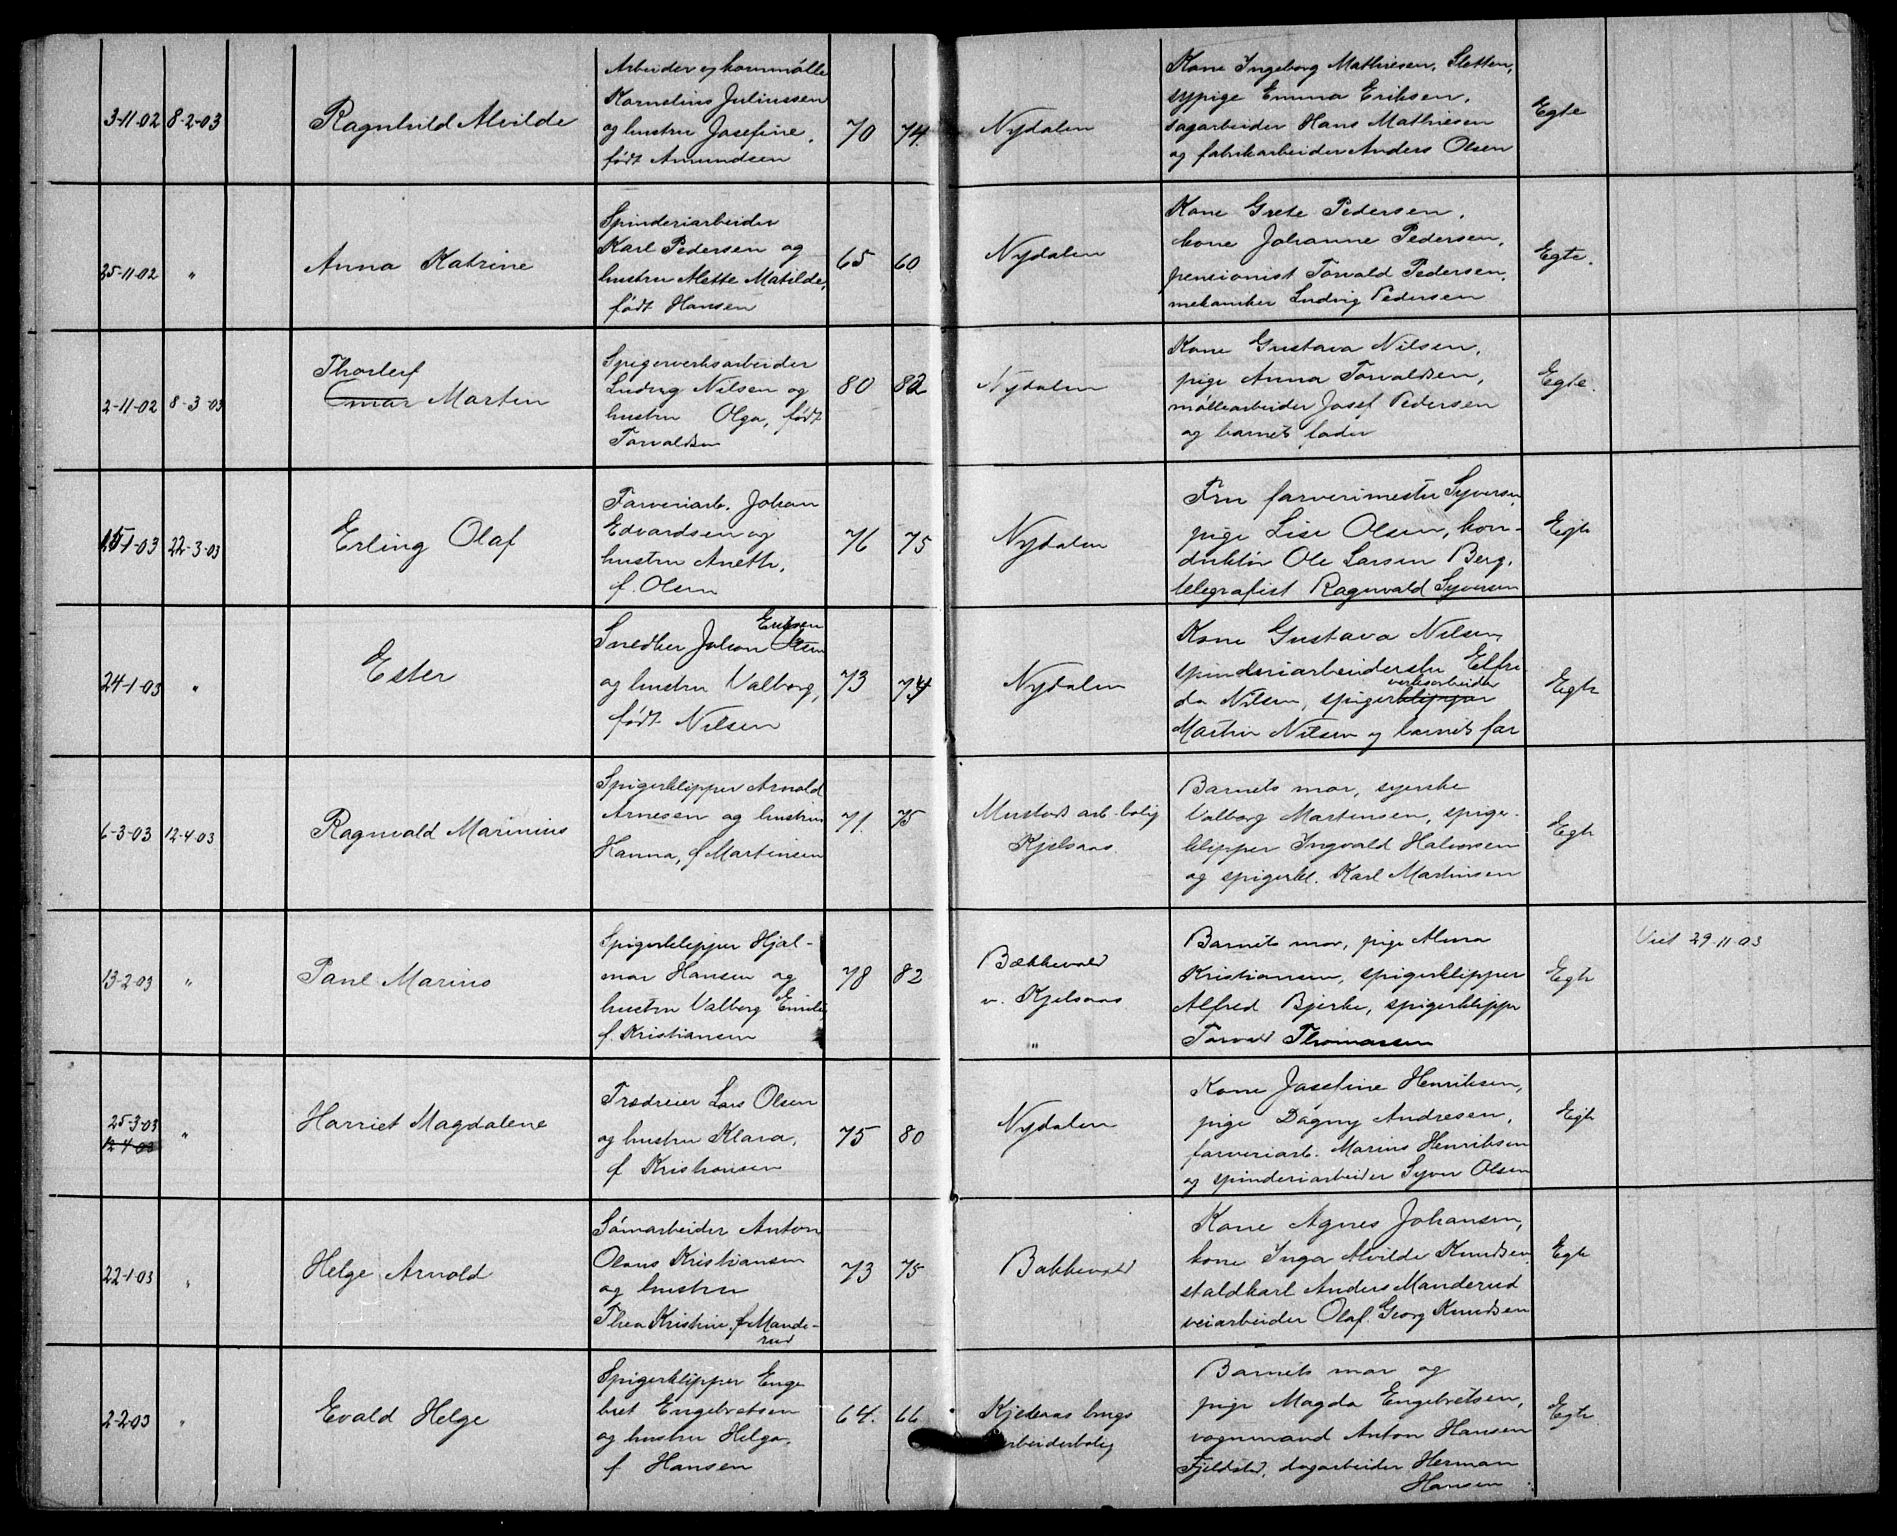 3-11-02 8-2-03 Ragnhild Alvilde
Arbeider og kornmølle
Kornelius Juliussen
og hustru Josefine,
født Amundsen
70 74.
Nydalen
Kone Ingeborg Mathiesen, Sletten,
sypige Emma Eriksen,
sagarbeider Hans Mathiesen
og fabrikarbeider Anders Olsen
Egte
25-11-02 " Anna Katrine
Spinderiarbeider
Karl Pedersen og
hustru Mette Matilde,
født Hansen
65 60
Nydalen
Kone Grete Pedersen,
kone Johanne Pedersen,
pensionist Torvald Pedersen,
mekaniker Ludvig Pedersen
Egte.
2-11-02 8-3-03 Thorleif
Omar Martin
Spigerverksarbeider
Ludvig Nilsen og
hustru Olga, født
Torvaldsen
80 82
Nydalen
Kone Gustava Nilsen,
pige Anna Torvaldsen,
møllearbeider Josef Pedersen
og barnets fader
Egte.
15-1-03 22-3-03 Erling Olaf
Farveriarb. Johan
Edvardsen og
hustru Aneth,
f. Olsen
76 75
Nydalen
Fru farverimester Syversen,
pige Lise Olsen, kon-
duktør Ole Larsen Berg,
telegrafist Ragnvald Syversen
Egte
24-1-03 " Ester
Eriksen
Snedker Johan Olsen
og hustru Valborg,
født Nilsen
73 74
Nydalen
Kone Gustava Nilsen,
spinderiarbeiderske Elfri
verksarbeider
da Nilsen, spigerklipper
Martin Nilsen og barnets far
Egte
6-3-03 12-4-03 Ragnvald Marinius
Spigerklipper Arnold
Arnesen og hustru
Hanna, f. Martensen
71. 75
Mustads arb. bolig
Kjelsaas.
Barnets mor, syerske
Valborg Martensen, spiger-
klipper Ingvald Halvorsen
og spigerkl. Karl Martinsen
Egte
13-2-03 " Paul Marius
Spigerklipper Hjal-
mar Hansen og
hustru Valborg Emilie
f. Kristiansen
78 82
Bækkevold
v. Kjelsaas
"
Barnets mor, pige Alma
Kristiansen, spigerklipper
Alfred Bjerke, spigerklipper
Torvald Thomassen
Egte
Viet 29-11-03
25-3-03
12-4-03 " Harriet Magdalene
Trædreier Lars Olsen
og hustru Klara,
f. Kristiansen
75 80
Nydalen
Kone Josefine Henriksen,
pige Dagny Andresen,
farveriarb. Marius Henriksen
og spinderiarbeider Syver Olsen
Egte
22-1-03 " Helge Arnold
Sømarbeider Anton
Olaus Kristiansen
og hustru
Thea Kristine, f. Mande-
rud
73 75
Bakkevold
Kone Agnes Johansen,
kone Inga Alvilde Knudsen,
staldkarl Anders Manderud
veiarbeider Olaf Georg Knudsen
Egte
2-2-03 " Evald Helge
Spigerklipper Enge
bret Engebretsen
og hustru Helga,
f. Hansen
64. 66
Kjelsaas brugs
arbeiderbolig
Barnets mor og
pige Magda Engebretsen,
vognmand Anton Hansen
Fjeldstad, dagarbeider Herman
Hansen
Egte.